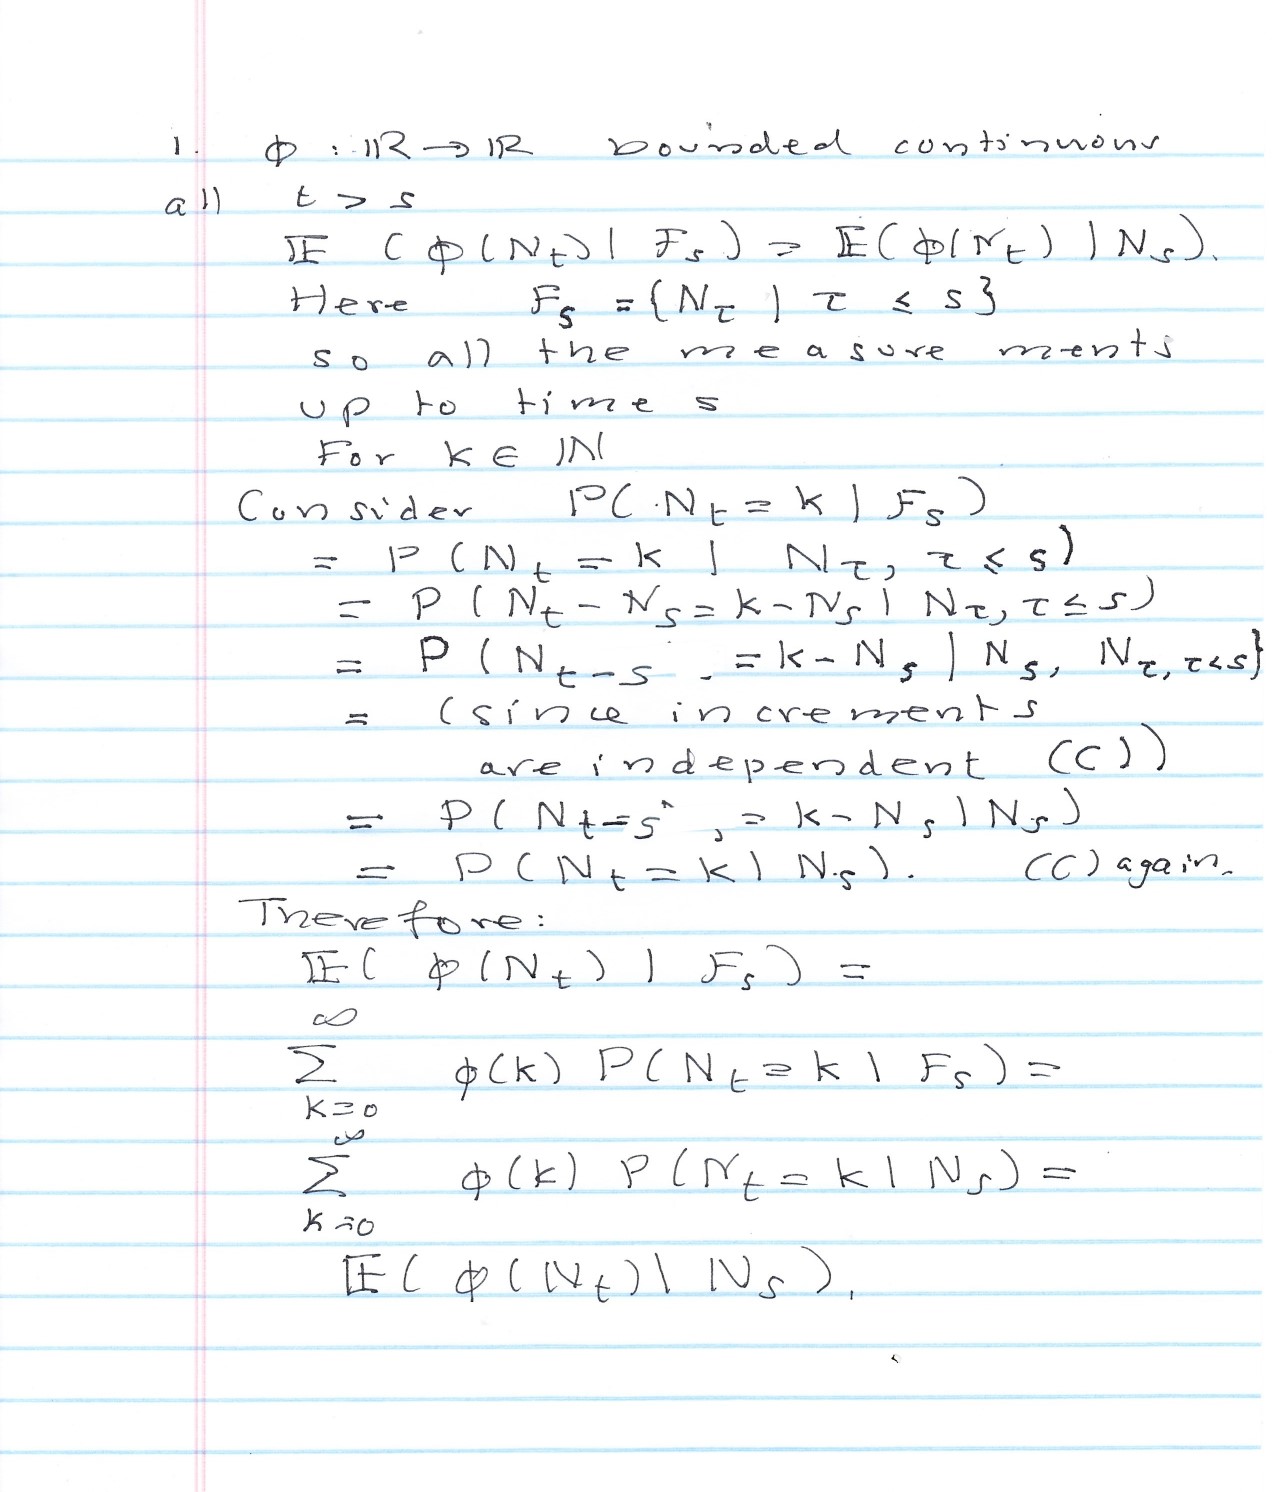 1. ϕ : ℝ → ℝ bounded continuous
all t > s
𝔼 (ϕ(N_t) | F_s) = 𝔼(ϕ(N_t) | N_s).
Here F_s = {N_τ | τ ≤ s}
so all the measurements
up to time s
For k ∈ ℕ
Consider P(N_t = k | F_s)
= P(N_t = k | N_τ, τ ≤ s)
= P(N_t - N_s = k - N_s | N_τ, τ ≤ s)
= P(N_{t-s} = k - N_s | N_s, N_τ, τ<s}
= (since increments
are independent (C))
= P(N_{t-s}, = k - N_s | N_s)
= P(N_t = k | N_s). (C) again.
Therefore:
𝔼(ϕ(N_t) | F_s) =
∞
Σ ϕ(k) P(N_t = k | F_s) =
k=0
∞
Σ ϕ(k) P(N_t = k | N_s) =
k=0
𝔼(ϕ(N_t) | N_s).